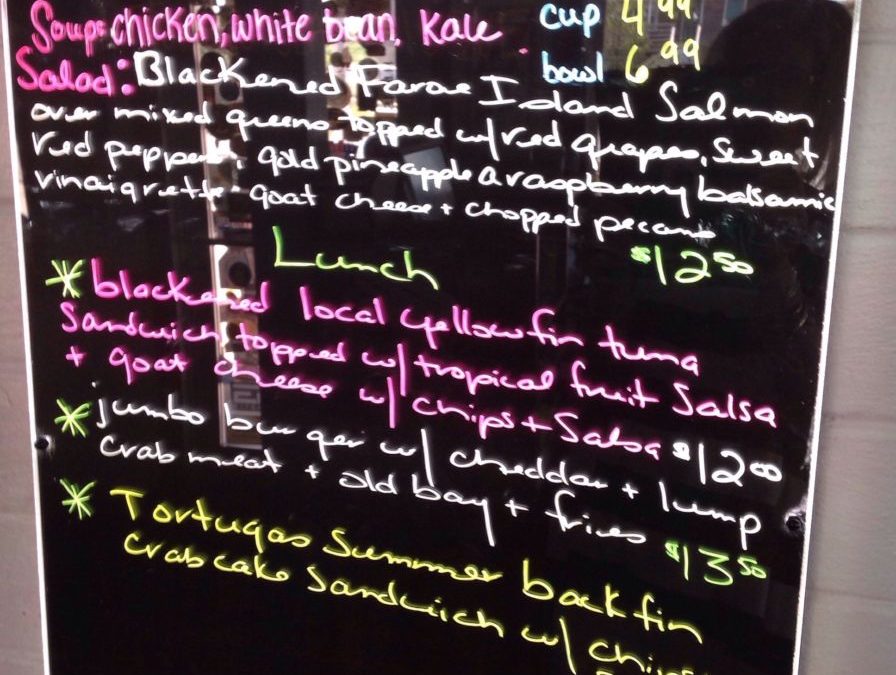 Soup: chicken, white bean, Kale cup 4.99
bowl 6.99
Salad: Blackened Faroe Island Salmon
over mixed greens topped w/ red grapes, sweet
red peppers, gold pineapple & raspberry balsamic
vinaigrette goat cheese + chopped pecans
$12.50
Lunch
* blackened local yellowfin tuna
Sandwich topped w/ tropical fruit Salsa
+ goat cheese w/ chips + Salsa $12.00
* jumbo burger w/ cheddar + lump
crab meat + old bay + fries $13.50
* Tortugas Summer backfin
crabcake Sandwich w/ chips